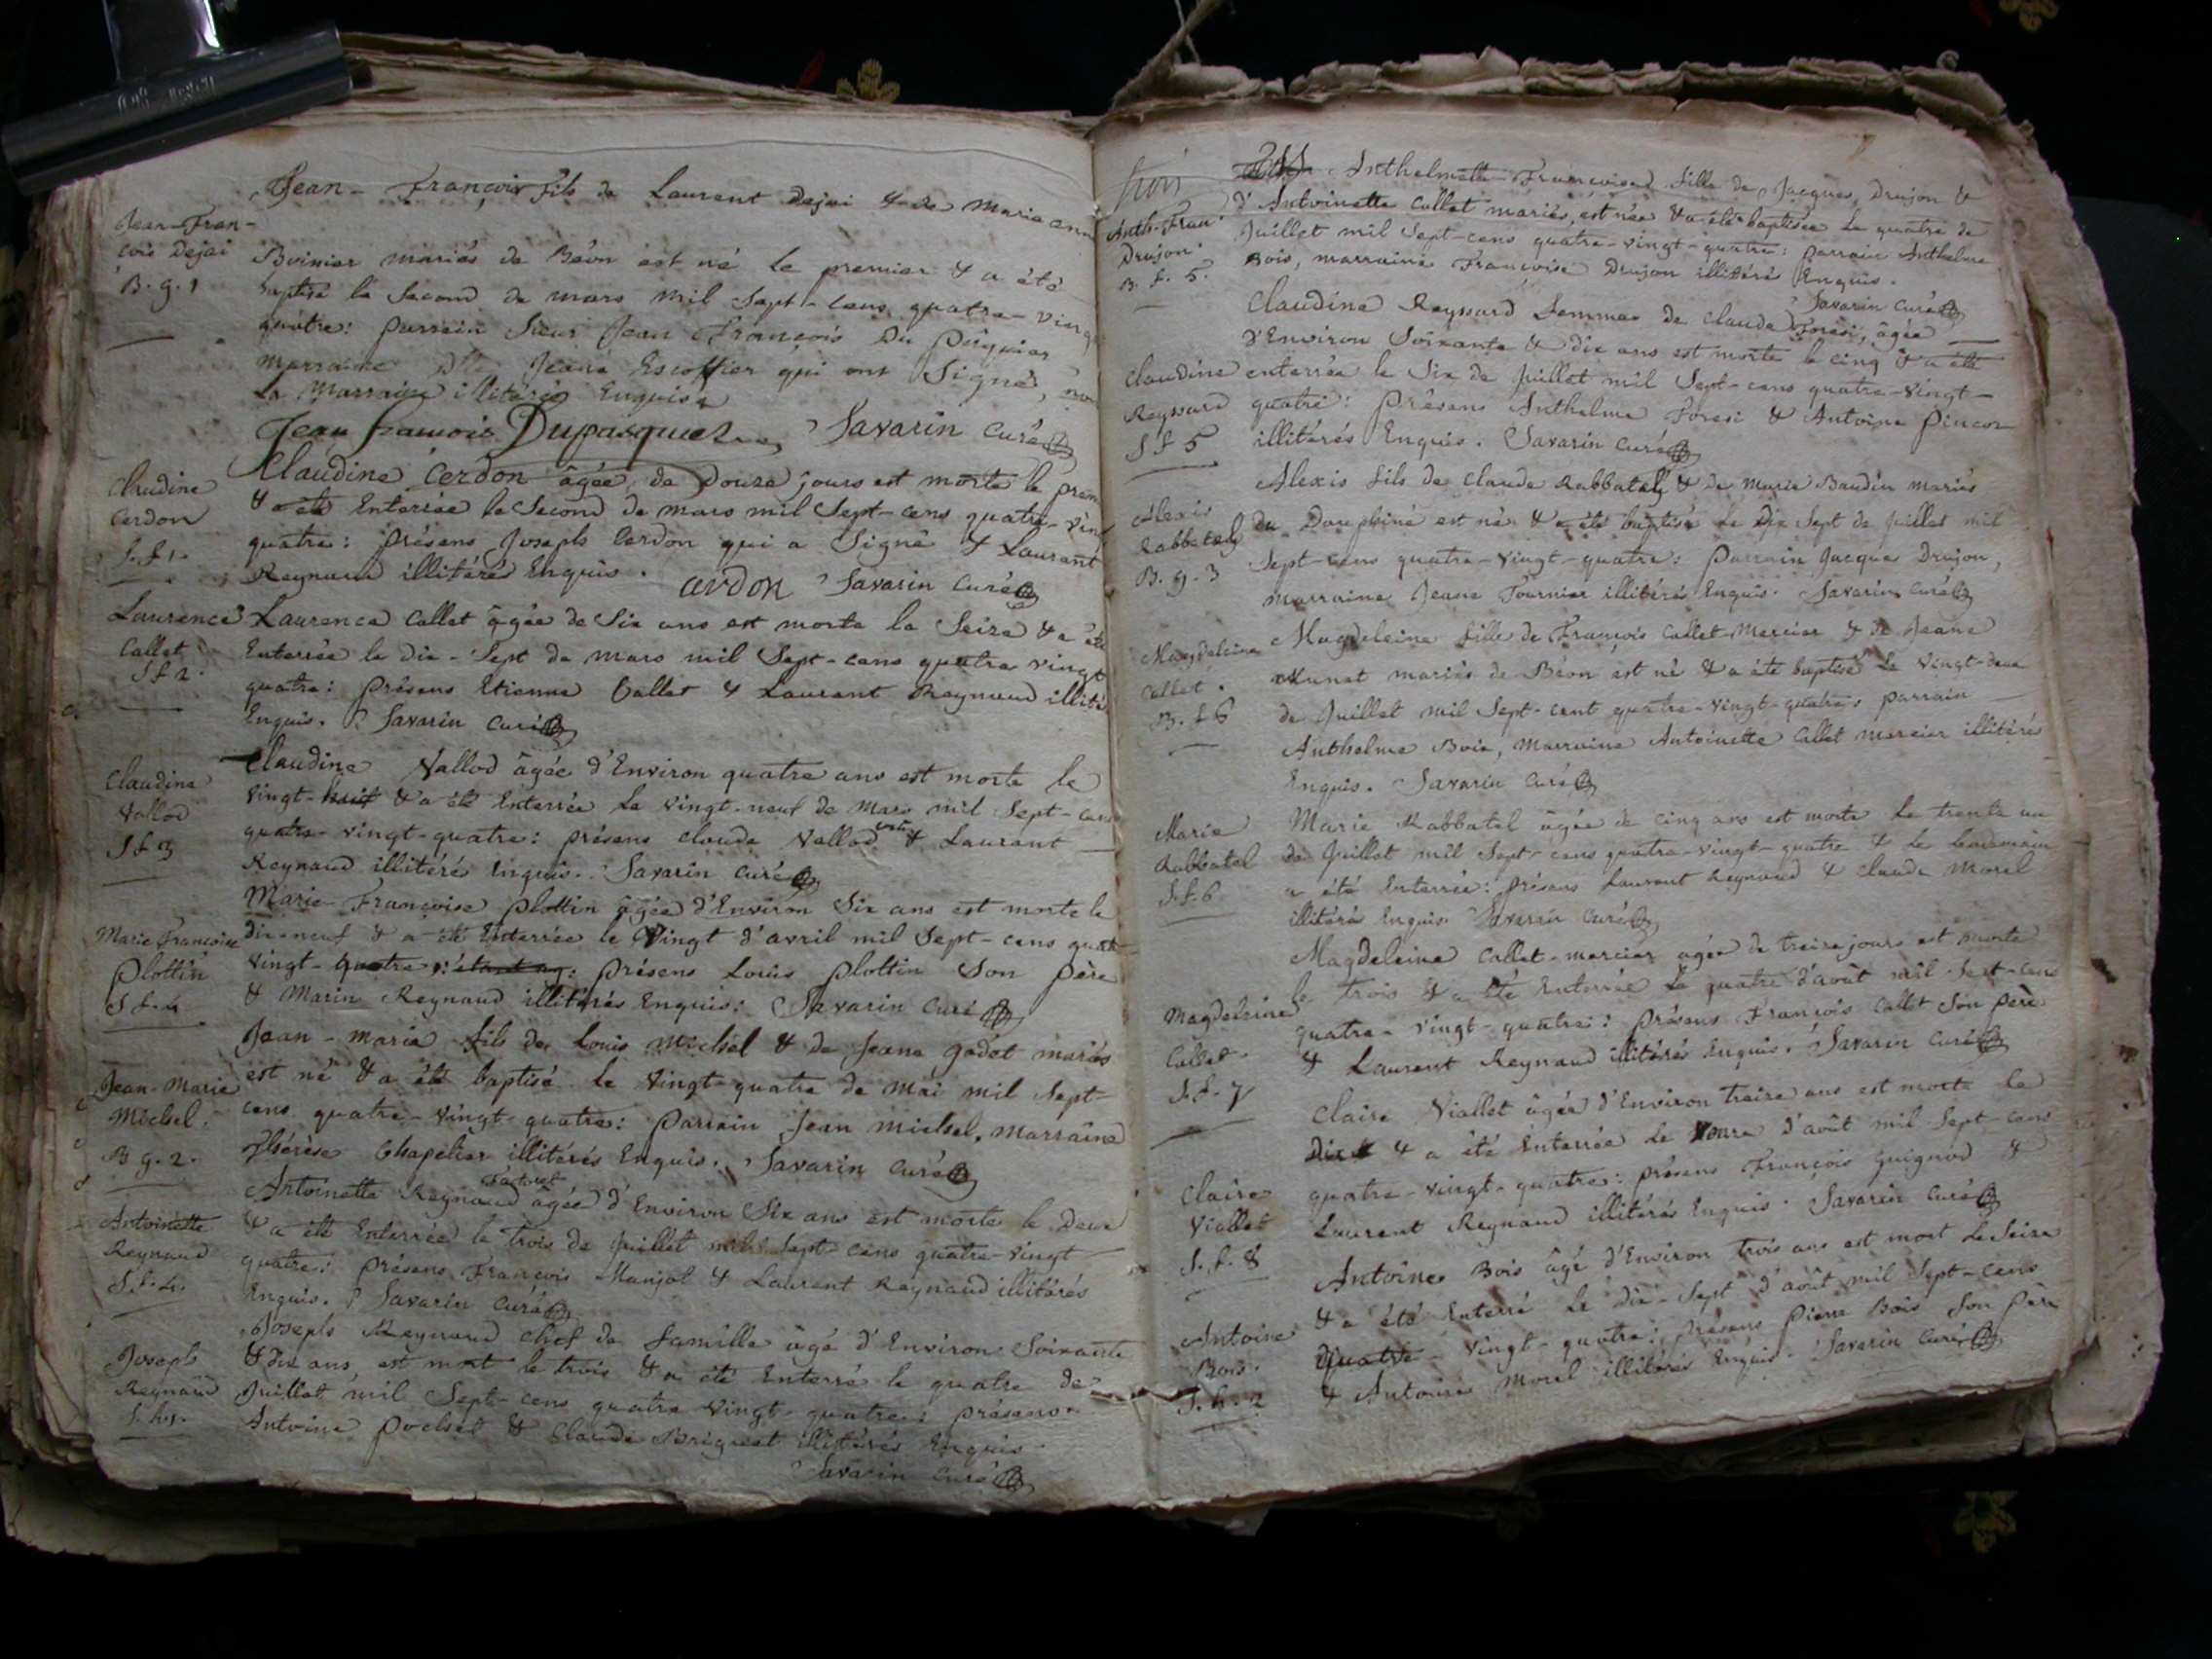 Jean-Fran-
çois Dejai
B. g. 1
Jean-François fils de Laurent Dejai & de Marie ann
Boinier mariés de Béon est né le premier & a été
baptisé le Second de mars mil Sept-cens quatre-ving
quatre: parrain Sieur Jean François Du Pâquier
marraine Dlle Jeane Escoffier qui ont Signé, non
la marraine illitérée Enquise
Jean francois Dupasquier Savarin curé
Claudine
Cerdon
S. f. 1.
Claudine Cerdon âgée de Douze jours est morte le prem
& a été Enterrée le Second de mars mil Sept-cens quatre-vin
quatre: présens Joseph Cerdon qui a Signé & Laurent
Reynaud illitéré Enquis.
cerdon Savarin curé
Laurence
Callet
S f 2.
Laurence Callet âgée de Six ans est morte le Seize & a été
Enterrée le dix-Sept de mars mil Sept-cens quatre vingt
quatre: présens Etienne Callet & Laurent Reynaud illité
Enquis. Savarin curé
Claudine
Vallod
S f 3
Claudine Vallod âgée d'Environ quatre ans est morte le
vingt-huit & a été Enterrée le vingt-neuf de mars mil Sept-cens
quatre-vingt-quatre: présens claude Vallod & Laurent
Reynaud illitérés Enquis. Savarin curé
Marie Françoise
Plottin
S f. 4
Marie-Françoise Plottin âgée d'Environ Six ans est morte le
dix-neuf & a été Enterrée le Vingt d'avril mil Sept-cens quatre
vingt-quatre : présens Louis plottin Son père
& Marin Reynaud illitérés Enquis: Savarin curé
Jean-Marie
Michel.
B g. 2.
Jean-marie fils de Louis Michel & de Jeane Godet mariés
est né & a été baptisé le vingt-quatre de Mai mil Sept-
cens quatre-vingt-quatre: Parrain Jean michel, marraine
Thérèse Chapelier illitérés Enquis. Savarin curé
Antoinette
Reynaud
S. f. 4.
Antoinette Reynaud âgée d'Environ Six ans est morte le deux
& a été Enterrée le trois de juillet mil Sept-cens quatre-vingt
quatre: présens François Manjot & Laurent Reynaud illitérés
Enquis. Savarin curé
Joseph
Reynaud
S. h. 1.
Joseph Reynaud chef de famille âgé d'Environ Soixante
& Dix ans, est mort le trois & a été Enterré le quatre de
Juillet mil Sept-cens quatre vingt-quatre: présens
Antoine Pochet & Claude Briquet illitérés Enquis.
Savarin curé
trois
Anth-Fran.
Drujon.
B. f. 5.
Anthelmette-Françoise fille de Jacques Drujon &
d'Antoinette Callet mariés, est née & a été baptisée le quatre de
Juillet mil Sept-cens quatre-vingt-quatre: parrain Anthelme
Bois, marraine Françoise Drujon illitérés Enquis.
Savarin curé
Claudine
Reyssard
S f 5
Claudine Reyssard femme de claude Foresi, âgée
d'Environ Soixante & dix ans est morte le cinq & a été
enterrée le Six de Juillet mil Sept-cens quatre-vingt-
quatre: présens Anthelme Foresi & Antoine Pincon
illitérés Enquis. Savarin curé
Alexis
Rabbately
B. g. 3
Alexis fils de Claude Rabbately & de Marie Baudin mariés
du Dauphiné est né & a été baptisé le Dix Sept de Juillet mil
Sept-cens quatre-vingt-quatre: Parrain Jacque Drujon,
marraine Jeane Fournier illitérés Enquis. Savarin curé
Magdeleine
Callet.
B. f 6
Magdeleine fille de François Callet-Mercier & de Jeane
Munet mariés de Béon est né & a été baptisé le vingt-deux
de Juillet mil Sept-cent quatre-vingt-quatre: parrain
Anthelme Bois, Marraine Antoinette Callet mercier illitérés
Enquis. Savarin curé
Marie
Rabbatel
S. f. 6
Marie Rabbatel âgée de cinq ans est morte le trente un
de Juillet mil Sept-cens quatre-vingt-quatre & le lendemain
a été Enterrée: présens Laurent Reynaud & claude Morel
illitérés Enquis. Savarin curé
Magdeleine
Callet.
S. f. 7
Magdeleine Callet-mercier agée de treize jours est morte
le trois & a été Enterrée le quatre d'août mil Sept-cens
quatre-vingt-quatre: présens François Callet Son père
& Laurent Reynaud illitérés Enquis. Savarin curé
Claire
Viallet
S. f. 8
Claire Viallet âgée d'Environ treize ans est morte le
Dix & a été Enterrée le onze d'août mil Sept-cens
quatre-vingt-quatre: présens François Guignod &
Laurent Reynaud illitérés Enquis. Savarin curé
Antoine
Bois.
S. h. 2
Antoine Bois âgé d'Environ trois ans est mort le Seize
& a été Enterré le dix-Sept d'août mil Sept-cens
quatre-vingt-quatre: présens Pierre Bois Son père
& Antoine Morel illitérés Enquis. Savarin curé